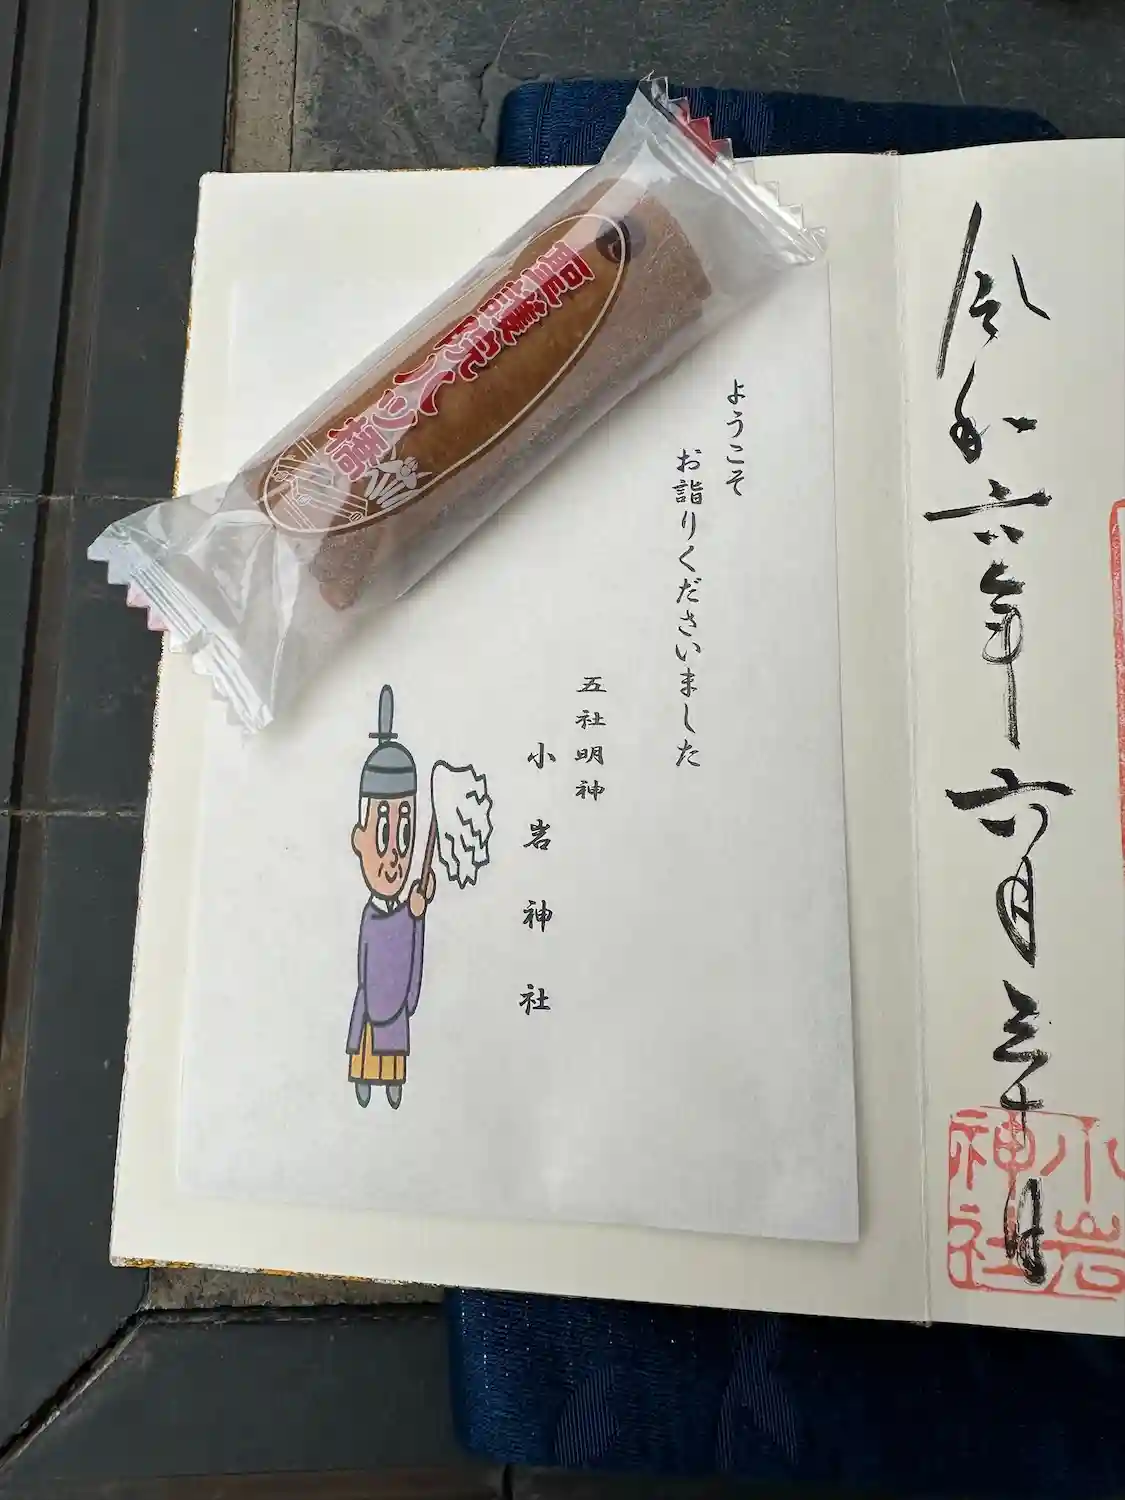 令和六年六月三十日
小岩
神社
ようこそ
お詣りくださいました
五社明神
小岩神社
尾張銘菓八ツ橋